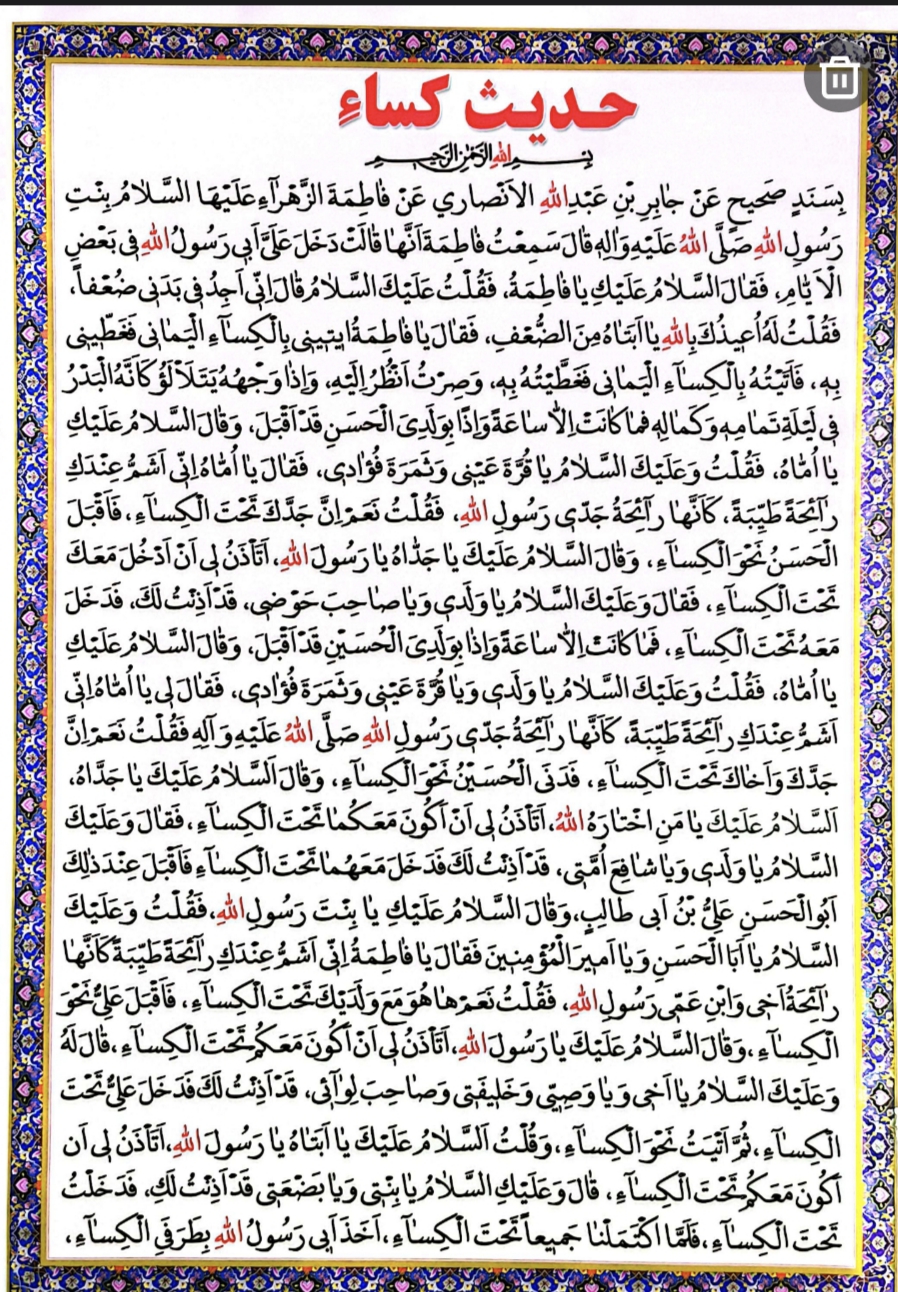 حديث كساءِ
بِسْمِ اللهِ الرَّحْمٰنِ الرَّحيمِ
بِسَنَدٍ صَحيحٍ عَنْ جٰابِرِ بْنِ عَبْدِاللهِ الاَنْصاري عَنْ فٰاطِمَةَ الزَّهْرآءِ عَلَيْهَا السَّلامُ بِنْتِ
رَسُولِ اللهِ صَلَّى اللهُ عَلَيْهِ وَالِهِ قالَ سَمِعْتُ فاطِمَةَ اَنَّها قالَتْ دَخَلَ عَلَيَّ اَبي رَسُولُ اللهِ فى بَعْضِ
الْاَيّامِ، فَقالَ السَّلامُ عَلَيْكِ يا فاطِمَةُ، فَقُلْتُ عَلَيْكَ السَّلامُ قالَ اِنّى اَجِدُ فى بَدَنى ضُعْفاً،
فَقُلْتُ لَهُ اُعيذُكَ بِاللهِ يا اَبَتاهُ مِنَ الضُّعْفِ، فَقالَ يا فاطِمَةُ ايتينى بِالْكِسآءِ الْيَمانى فَغَطّينى
بِهِ، فَاَتَيْتُهُ بِالْكِسآءِ الْيَمانى فَغَطَّيْتُهُ بِهِ، وَصِرْتُ اَنْظُرُ اِلَيْهِ، وَاِذا وَجْهُهُ يَتَلَأْلَؤُ كَاَنَّهُ الْبَدْرُ
فى لَيْلَةِ تَمامِهِ وَكَمالِهِ فَما كانَتْ اِلاّ ساعَةً وَاِذا بِوَلَدِىَ الْحَسَنِ قَدْ اَقْبَلَ، وَقالَ السَّلامُ عَلَيْكِ
يا اُمّاهُ، فَقُلْتُ وَعَلَيْكَ السَّلامُ يا قُرَّةَ عَيْنى وَثَمَرَةَ فُؤادى، فَقالَ يا اُمّاهُ اِنّى اَشَمُّ عِنْدَكِ
رآئِحَةً طَيِّبَةً، كَاَنَّها رآئِحَةُ جَدّى رَسُولِ اللهِ، فَقُلْتُ نَعَمْ اِنَّ جَدَّكَ تَحْتَ الْكِسآءِ، فَاَقْبَلَ
الْحَسَنُ نَحْوَ الْكِسآءِ، وَقالَ السَّلامُ عَلَيْكَ يا جَدّاهُ يا رَسُولَ اللهِ، اَتَأْذَنُ لى اَنْ اَدْخُلَ مَعَكَ
تَحْتَ الْكِسآءِ، فَقالَ وَعَلَيْكَ السَّلامُ يا وَلَدى وَيا صاحِبَ حَوْضى، قَدْ اَذِنْتُ لَكَ، فَدَخَلَ
مَعَهُ تَحْتَ الْكِسآءِ، فَما كانَتْ اِلاّ ساعَةً وَاِذا بِوَلَدِىَ الْحُسَيْنِ قَدْ اَقْبَلَ، وَقالَ السَّلامُ عَلَيْكِ
يا اُمّاهُ، فَقُلْتُ وَعَلَيْكَ السَّلامُ يا وَلَدى وَيا قُرَّةَ عَيْنى وَثَمَرَةَ فُؤادى، فَقالَ لى يا اُمّاهُ اِنّى
اَشَمُّ عِنْدَكِ رآئِحَةً طَيِّبَةً، كَاَنَّها رآئِحَةُ جَدّى رَسُولِ اللهِ صَلَّى اللهُ عَلَيْهِ وَآلِهِ فَقُلْتُ نَعَمْ اِنَّ
جَدَّكَ وَاَخاكَ تَحْتَ الْكِسآءِ، فَدَنَى الْحُسَيْنُ نَحْوَ الْكِسآءِ، وَقالَ اَلسَّلامُ عَلَيْكَ يا جَدَّاهُ،
اَلسَّلامُ عَلَيْكَ يا مَنِ اخْتارَهُ اللهُ، اَتَأْذَنُ لى اَنْ اَكُونَ مَعَكُما تَحْتَ الْكِسآءِ، فَقالَ وَعَلَيْكَ
السَّلامُ يا وَلَدى وَيا شافِعَ اُمَّتى، قَدْ اَذِنْتُ لَكَ فَدَخَلَ مَعَهُما تَحْتَ الْكِسآءِ فَاَقْبَلَ عِنْدَ ذلِكَ
اَبُو الْحَسَنِ عَلِىُّ بْنُ اَبى طالِبٍ، وَقالَ السَّلامُ عَلَيْكِ يا بِنْتَ رَسُولِ اللهِ، فَقُلْتُ وَعَلَيْكَ
السَّلامُ يا اَبَا الْحَسَنِ وَيا اَميرَ الْمُؤْمِنينَ فَقالَ يا فاطِمَةُ اِنّى اَشَمُّ عِنْدَكِ رآئِحَةً طَيِّبَةً كَاَنَّها
رآئِحَةُ اَخى وَابْنِ عَمّى رَسُولِ اللهِ، فَقُلْتُ نَعَمْ ها هُوَ مَعَ وَلَدَيْكَ تَحْتَ الْكِسآءِ، فَاَقْبَلَ عَلِىٌّ نَحْوَ
الْكِسآءِ، وَقالَ السَّلامُ عَلَيْكَ يا رَسُولَ اللهِ، اَتَأْذَنُ لى اَنْ اَكُونَ مَعَكُمْ تَحْتَ الْكِسآءِ، قالَ لَهُ
وَعَلَيْكَ السَّلامُ يا اَخى وَيا وَصِيّى وَخَليفَتى وَصاحِبَ لِوآئى، قَدْ اَذِنْتُ لَكَ فَدَخَلَ عَلِىٌّ تَحْتَ
الْكِسآءِ، ثُمَّ اَتَيْتُ نَحْوَ الْكِسآءِ، وَقُلْتُ اَلسَّلامُ عَلَيْكَ يا اَبَتاهُ يا رَسُولَ اللهِ، اَتَأْذَنُ لى اَن
اَكُونَ مَعَكُمْ تَحْتَ الْكِسآءِ، قالَ وَعَلَيْكِ السَّلامُ يا بِنْتى وَيا بَضْعَتى قَدْ اَذِنْتُ لَكِ، فَدَخَلْتُ
تَحْتَ الْكِسآءِ، فَلَمَّا اكْتَمَلْنا جَميعاً تَحْتَ الْكِسآءِ، اَخَذَ اَبى رَسُولُ اللهِ بِطَرَفَىِ الْكِسآءِ،